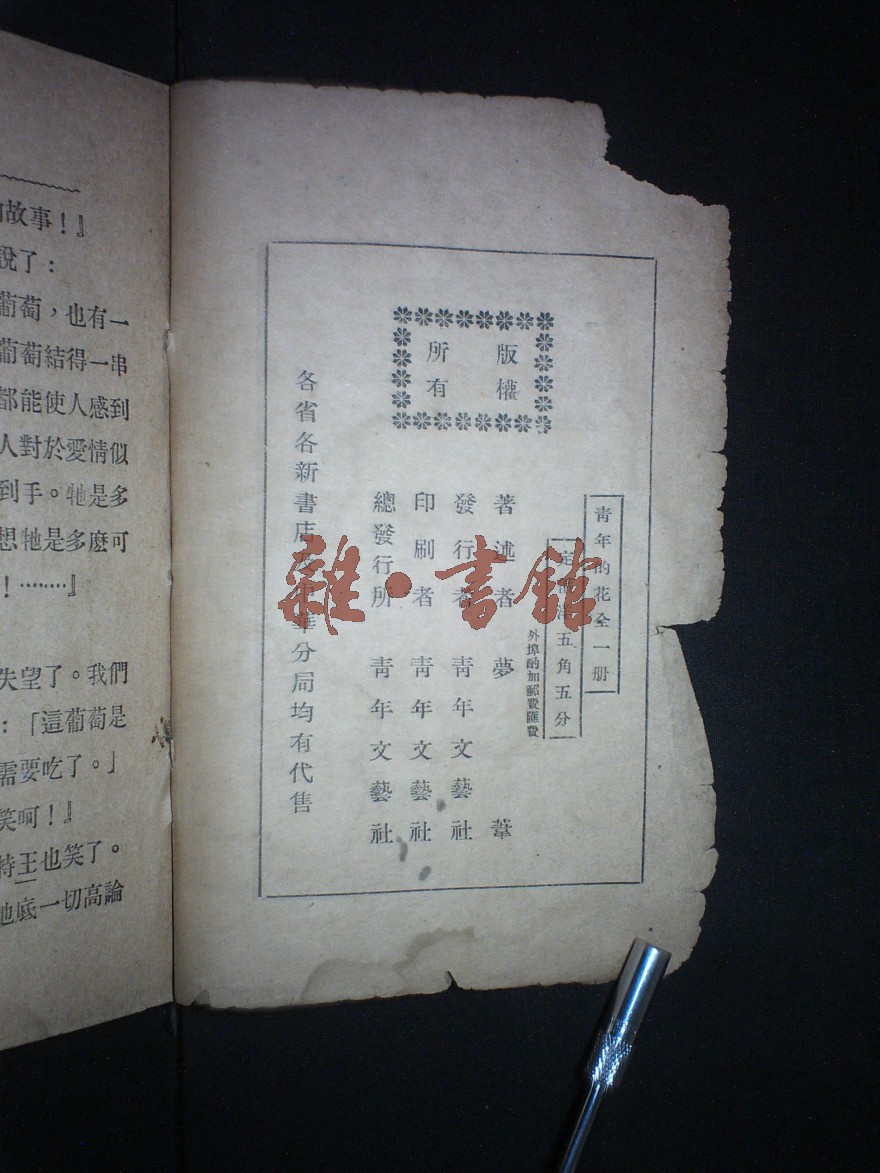 青年的花全一册
定價洋五角五分
外埠酌加郵費匯費
版權
所有
著述者 夢葦
發行者 青年文藝社
印刷者 青年文藝社
總發行所 青年文藝社
各省各新書店及中華分局均有代售
雜·書館
故事！』
說了：
葡萄，也有一
葡萄結得一串
都能使人感到
人對於愛情似
到手。牠是多
想牠是多麽可
！………』
失望了。我們
：「這葡萄是
需要吃了。」
笑呵！』
王也笑了。
底一切高論